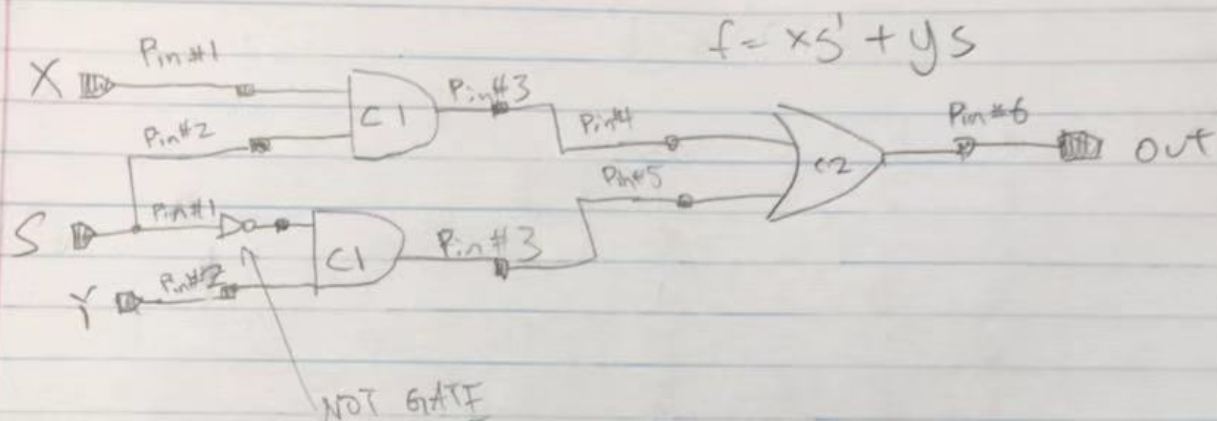 f = xs' + ys
X Pin #1
Pin #2
C1
Pin #3
Pin #4
Pin #5
C2
Pin #6
out
S Pin #1
Y Pin #2
C1
Pin #3
NOT GATE